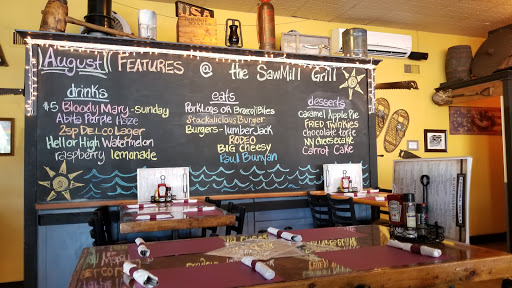 USA
August FEATURES @ the SawMill Grill
drinks
$5 Bloody Mary - Sunday
Abita Purple Haze
2SP Delco Lager
Hell or High Watermelon
raspberry lemonade
eats
Pork Logs or Bronco Bites
Stackalicious Burger
Burgers - Lumber Jack
RODEO
BIG Cheesy
Paul Bunyan
desserts
caramel Apple Pie
FRIED Twinkies
chocolate torte
NY cheesecake
Carrot Cake